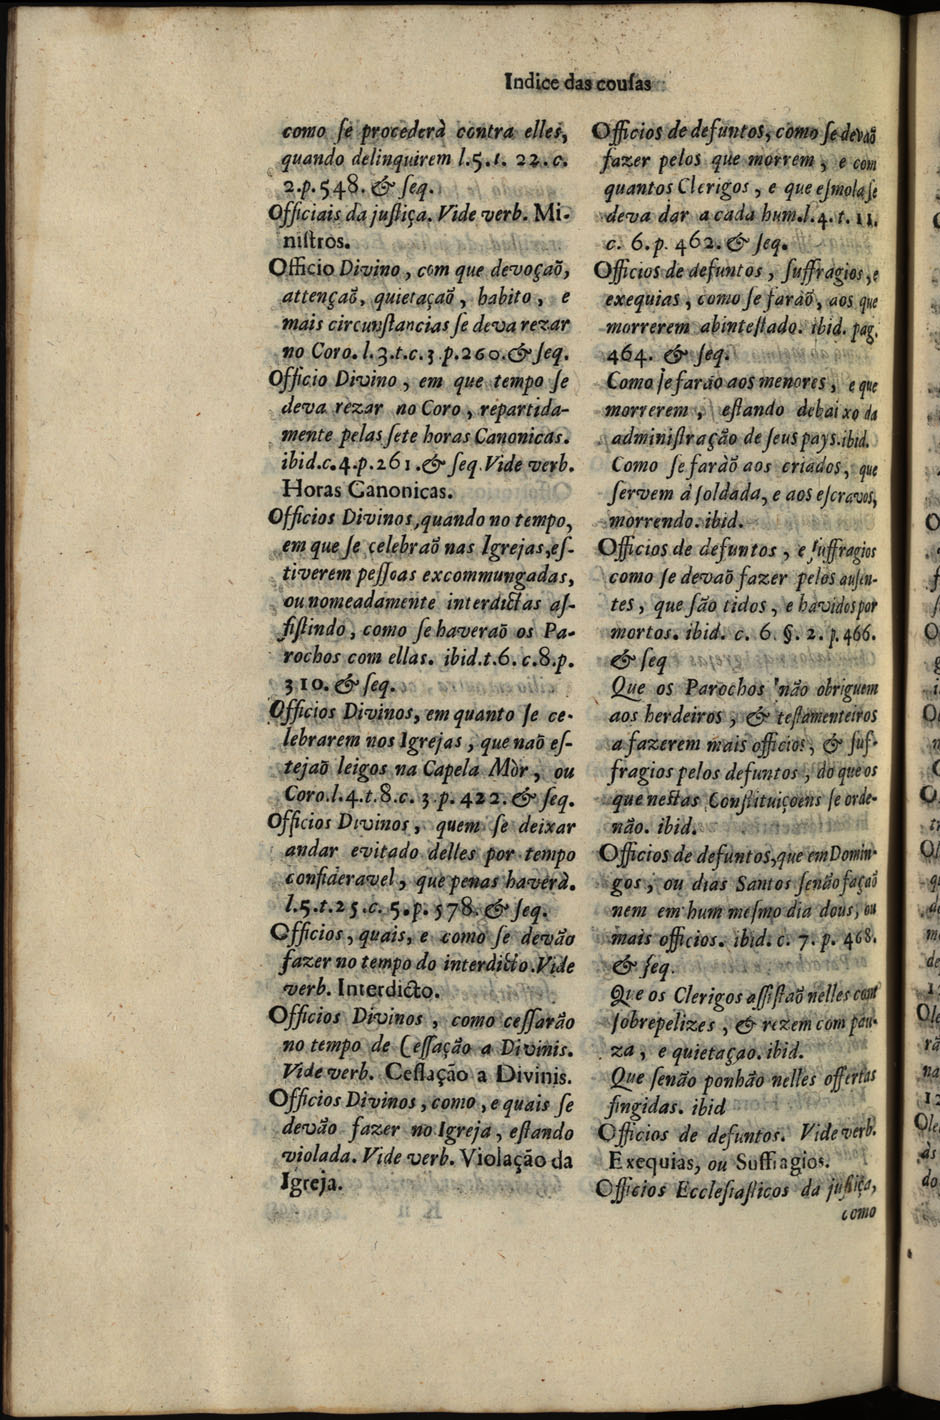 Indice das couſas
como ſe procederà contra elles,
quando delinquirem l.5.t. 22.c.
2.p.548. & ſeq.
Officiais da juſtiça. Vide verb. Mi-
niſtros.
Officio Divino, com que devoçaõ,
attençaõ, quietaçaõ, habito, e
mais circunſtancias ſe deva rezar
no Coro. l.3.t.c.3.p.260.& ſeq.
Officio Divino, em que tempo ſe
deva rezar no Coro, repartida-
mente pelas ſete horas Canonicas.
ibid.c.4.p.261.& ſeq. Vide verb.
Horas Canonicas.
Officios Divinos, quando no tempo,
em que ſe celebraõ nas Igrejas, eſ-
tiverem peſſoas excommungadas,
ou nomeadamente interdictas aſ-
ſiſtindo, como ſe haveraõ os Pa-
rochos com ellas. ibid.t.6.c.8.p.
310.& ſeq.
Officios Divinos, em quanto ſe ce-
lebrarem nos Igrejas, que naõ eſ-
tejaõ leigos na Capela Mòr, ou
Coro.l.4.t.8.c.3.p.422.& ſeq.
Officios Divinos, quem ſe deixar
andar evitado delles por tempo
conſideravel, que penas haverà.
l.5.t.25.c.5.p.578.& ſeq.
Officios, quais, e como ſe devão
fazer no tempo do interdicto. Vide
verb. Interdicto.
Officios Divinos, como ceſſarão
no tempo de Ceſſação a Divinis.
Vide verb. Ceſſação a Divinis.
Officios Divinos, como, e quais ſe
devão fazer no Igreja, eſtando
violada. Vide verb. Violação da
Igreja.
Officios de defuntos, como ſe devaõ
fazer pelos que morrem, e com
quantos Clerigos, e que eſmola ſe
deva dar a cada hum.l.4.t.11.
c. 6. p. 462. & ſeq.
Officios de defuntos, ſuffragios, e
exequias, como ſe farão, aos que
morrerem abinteſtado. ibid. pag.
464. & ſeq.
Como ſe farão aos menores, e que
morrerem, eſtando debaixo da
adminiſtração de ſeus pays. ibid.
Como ſe farão aos criados, que
ſervem à ſoldada, e aos eſcravos,
morrendo. ibid.
Officios de defuntos, e ſuffragios
como ſe devaõ fazer pelos auſen-
tes, que ſão tidos, e havidos por
mortos. ibid. c. 6. §. 2. p. 466.
& ſeq
Que os Parochos não obriguem
aos herdeiros, & teſtamenteiros
a fazerem mais officios, & ſuf-
fragios pelos defuntos, do que os
que neſtas Conſtituiçoens ſe orde-
não. ibid.
Officios de defuntos, que em Domin-
gos, ou dias Santos ſenão façaõ
nem em hum meſmo dia dous, ou
mais officios. ibid. c. 7. p. 468.
& ſeq.
Que os Clerigos aſſiſtaõ nelles com
ſobrepelizes, & rezem com pau-
za, e quietaçao. ibid.
Que ſenão ponhão nelles offertas
fingidas. ibid
Officios de defuntos. Vide verb.
Exequias, ou Suffragios.
Officios Eccleſiaſticos da juſtiça,
como